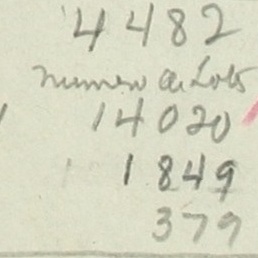 4482
numero de Lots
14020
1849
379